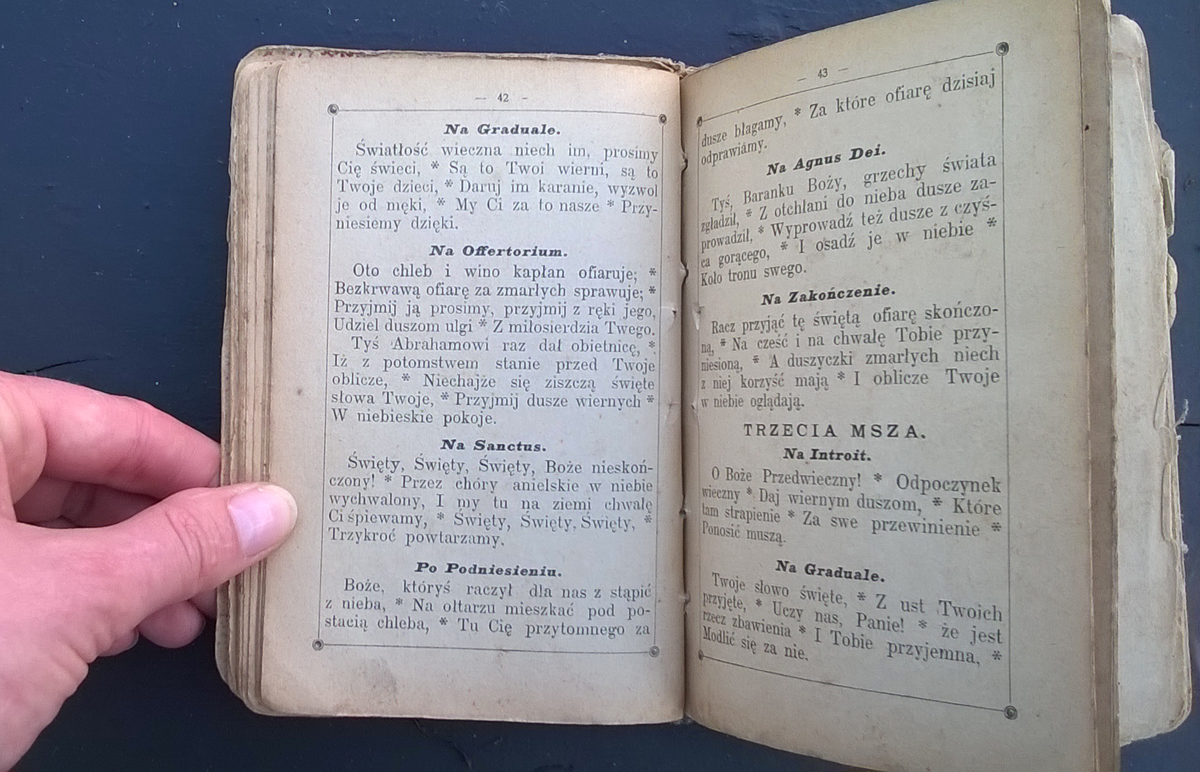 — 42 —
Na Graduale.
Światłość wieczna niech im, prosimy
Cię świeci, * Są to Twoi wierni, są to
Twoje dzieci, * Daruj im karanie, wyzwol
je od męki, * My Ci za to nasze * Przy-
niesiemy dzięki.
Na Offertorium.
Oto chleb i wino kapłan ofiaruje; *
Bezkrwawą ofiarę za zmarłych sprawuje; *
Przyjmij ją prosimy, przyjmij z ręki jego,
Udziel duszom ulgi * Z miłosierdzia Twego.
Tyś Abrahamowi raz dał obietnicę, *
Iż z potomstwem stanie przed Twoje
oblicze, * Niechajże się ziszczą święte
słowa Twoje, * Przyjmij dusze wiernych *
W niebieskie pokoje.
Na Sanctus.
Święty, Święty, Święty, Boże nieskoń-
czony! * Przez chóry anielskie w niebie
wychwalony, I my tu na ziemi chwałę
Ci śpiewamy, * Święty, Święty, Święty, *
Trzykroć powtarzamy.
Po Podniesieniu.
Boże, któryś raczył dla nas z stąpić
z nieba, * Na ołtarzu mieszkać pod po-
stacią chleba, * Tu Cię przytomnego za
— 43 —
dusze błagamy, * Za które ofiarę dzisiaj
odprawiamy.
Na Agnus Dei.
Tyś, Baranku Boży, grzechy świata
zgładził, * Z otchłani do nieba dusze za-
prowadził, * Wyprowadź też dusze z czyś-
ca gorącego, * I osadź je w niebie *
Koło tronu swego.
Na Zakończenie.
Racz przyjąć tę świętą ofiarę skończo-
ną, * Na cześć i na chwałę Tobie przy-
niesioną, * A duszyczki zmarłych niech
z niej korzyść mają * I oblicze Twoje
w niebie oglądają.
TRZECIA MSZA.
Na Introit.
O Boże Przedwieczny! * Odpoczynek
wieczny * Daj wiernym duszom, * Które
tam strapienie * Za swe przewinienie *
Ponosić muszą.
Na Graduale.
Twoje słowo święte, * Z ust Twoich
przyjęte, * Uczy nas, Panie! * że jest
rzecz zbawienia * I Tobie przyjemna, *
Modlić się za nie.